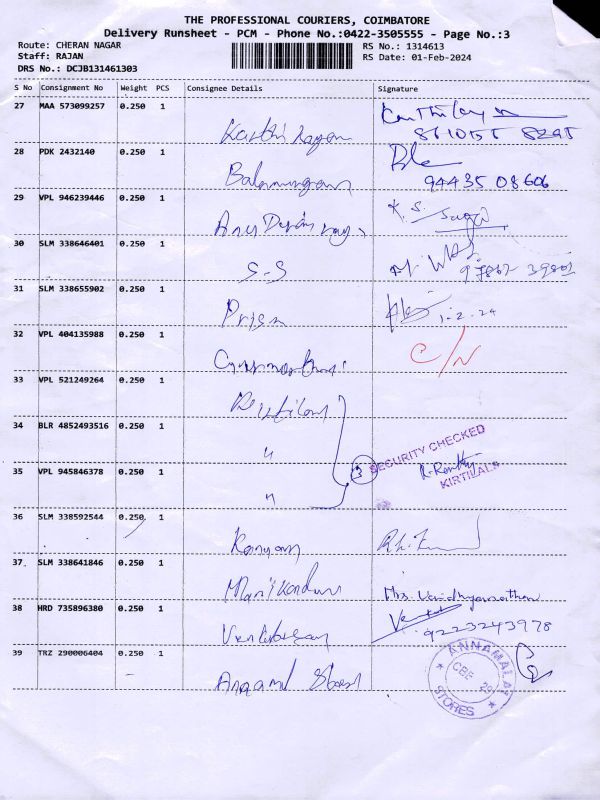 THE PROFESSIONAL COURIERS, COIMBATORE
Delivery Runsheet - PCM - Phone No.:0422-3505555 - Page No.:3
Route: CHERAN NAGAR RS No.: 1314613
Staff: RAJAN RS Date: 01-Feb-2024
DRS No.: DCJB131461303
S No Consignment No Weight PCS Consignee Details Signature
27 MAA 573099257 0.250 1
28 PDK 2432140 0.250 1
94435 08606
29 VPL 946239446 0.250 1
K. S.
30 SLM 338646401 0.250 1
S-S
31 SLM 338655902 0.250 1
1-2-24
32 VPL 404135988 0.250 1
C/N
33 VPL 521249264 0.250 1
34 BLR 4852493516 0.250 1
"
SECURITY CHECKED
35 VPL 945846378 0.250 1
" 3
KIRTILALS
36 SLM 338592544 0.250 1
37 SLM 338641846 0.250 1
Manikandan Mrs. Vaidhyanathan
38 HRD 735896380 0.250 1
9223243978
39 TRZ 290006404 0.250 1
ANNAMALAI
CBE 29
STORES